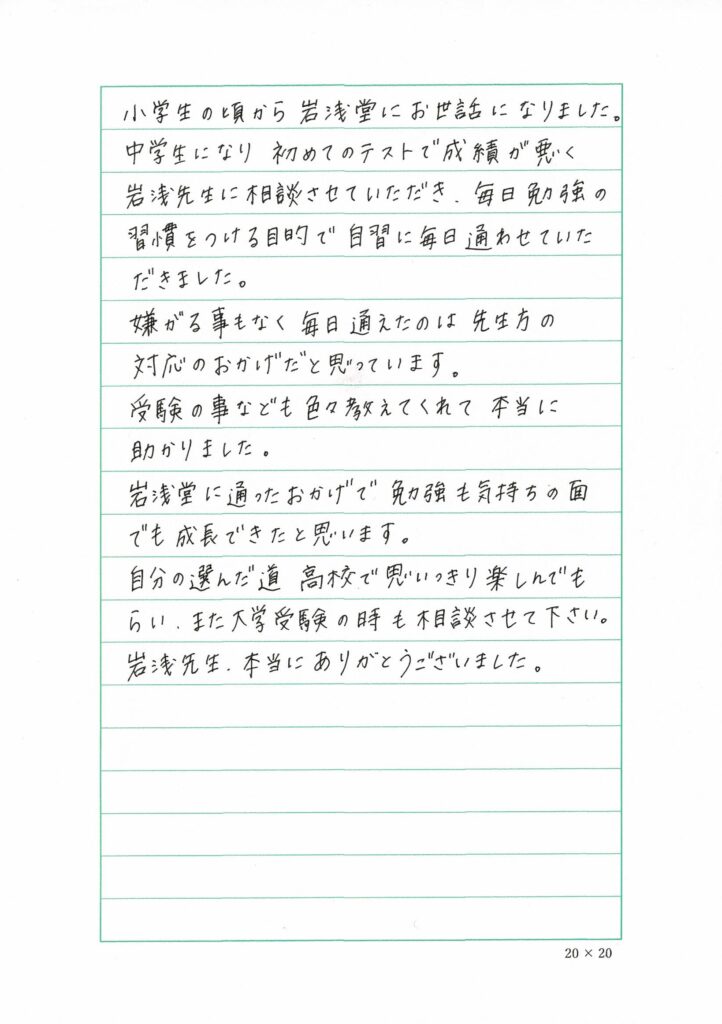 小学生の頃から 岩浅堂に お世話に なりました。
中学生になり 初めてのテストで 成績が悪く
岩浅先生に相談させていただき、毎日勉強の
習慣をつける目的で 自習に毎日通わせていた
だきました。
嫌がる事もなく 毎日通えたのは 先生方の
対応のおかげだと思っています。
受験の事なども 色々教えてくれて 本当に
助かりました。
岩浅堂に通ったおかげで 勉強も気持ちの面
でも 成長できたと思います。
自分の選んだ道 高校で思いっきり楽しんでも
らい、また大学受験の時も相談させて下さい。
岩浅先生、本当にありがとうございました。
20 × 20